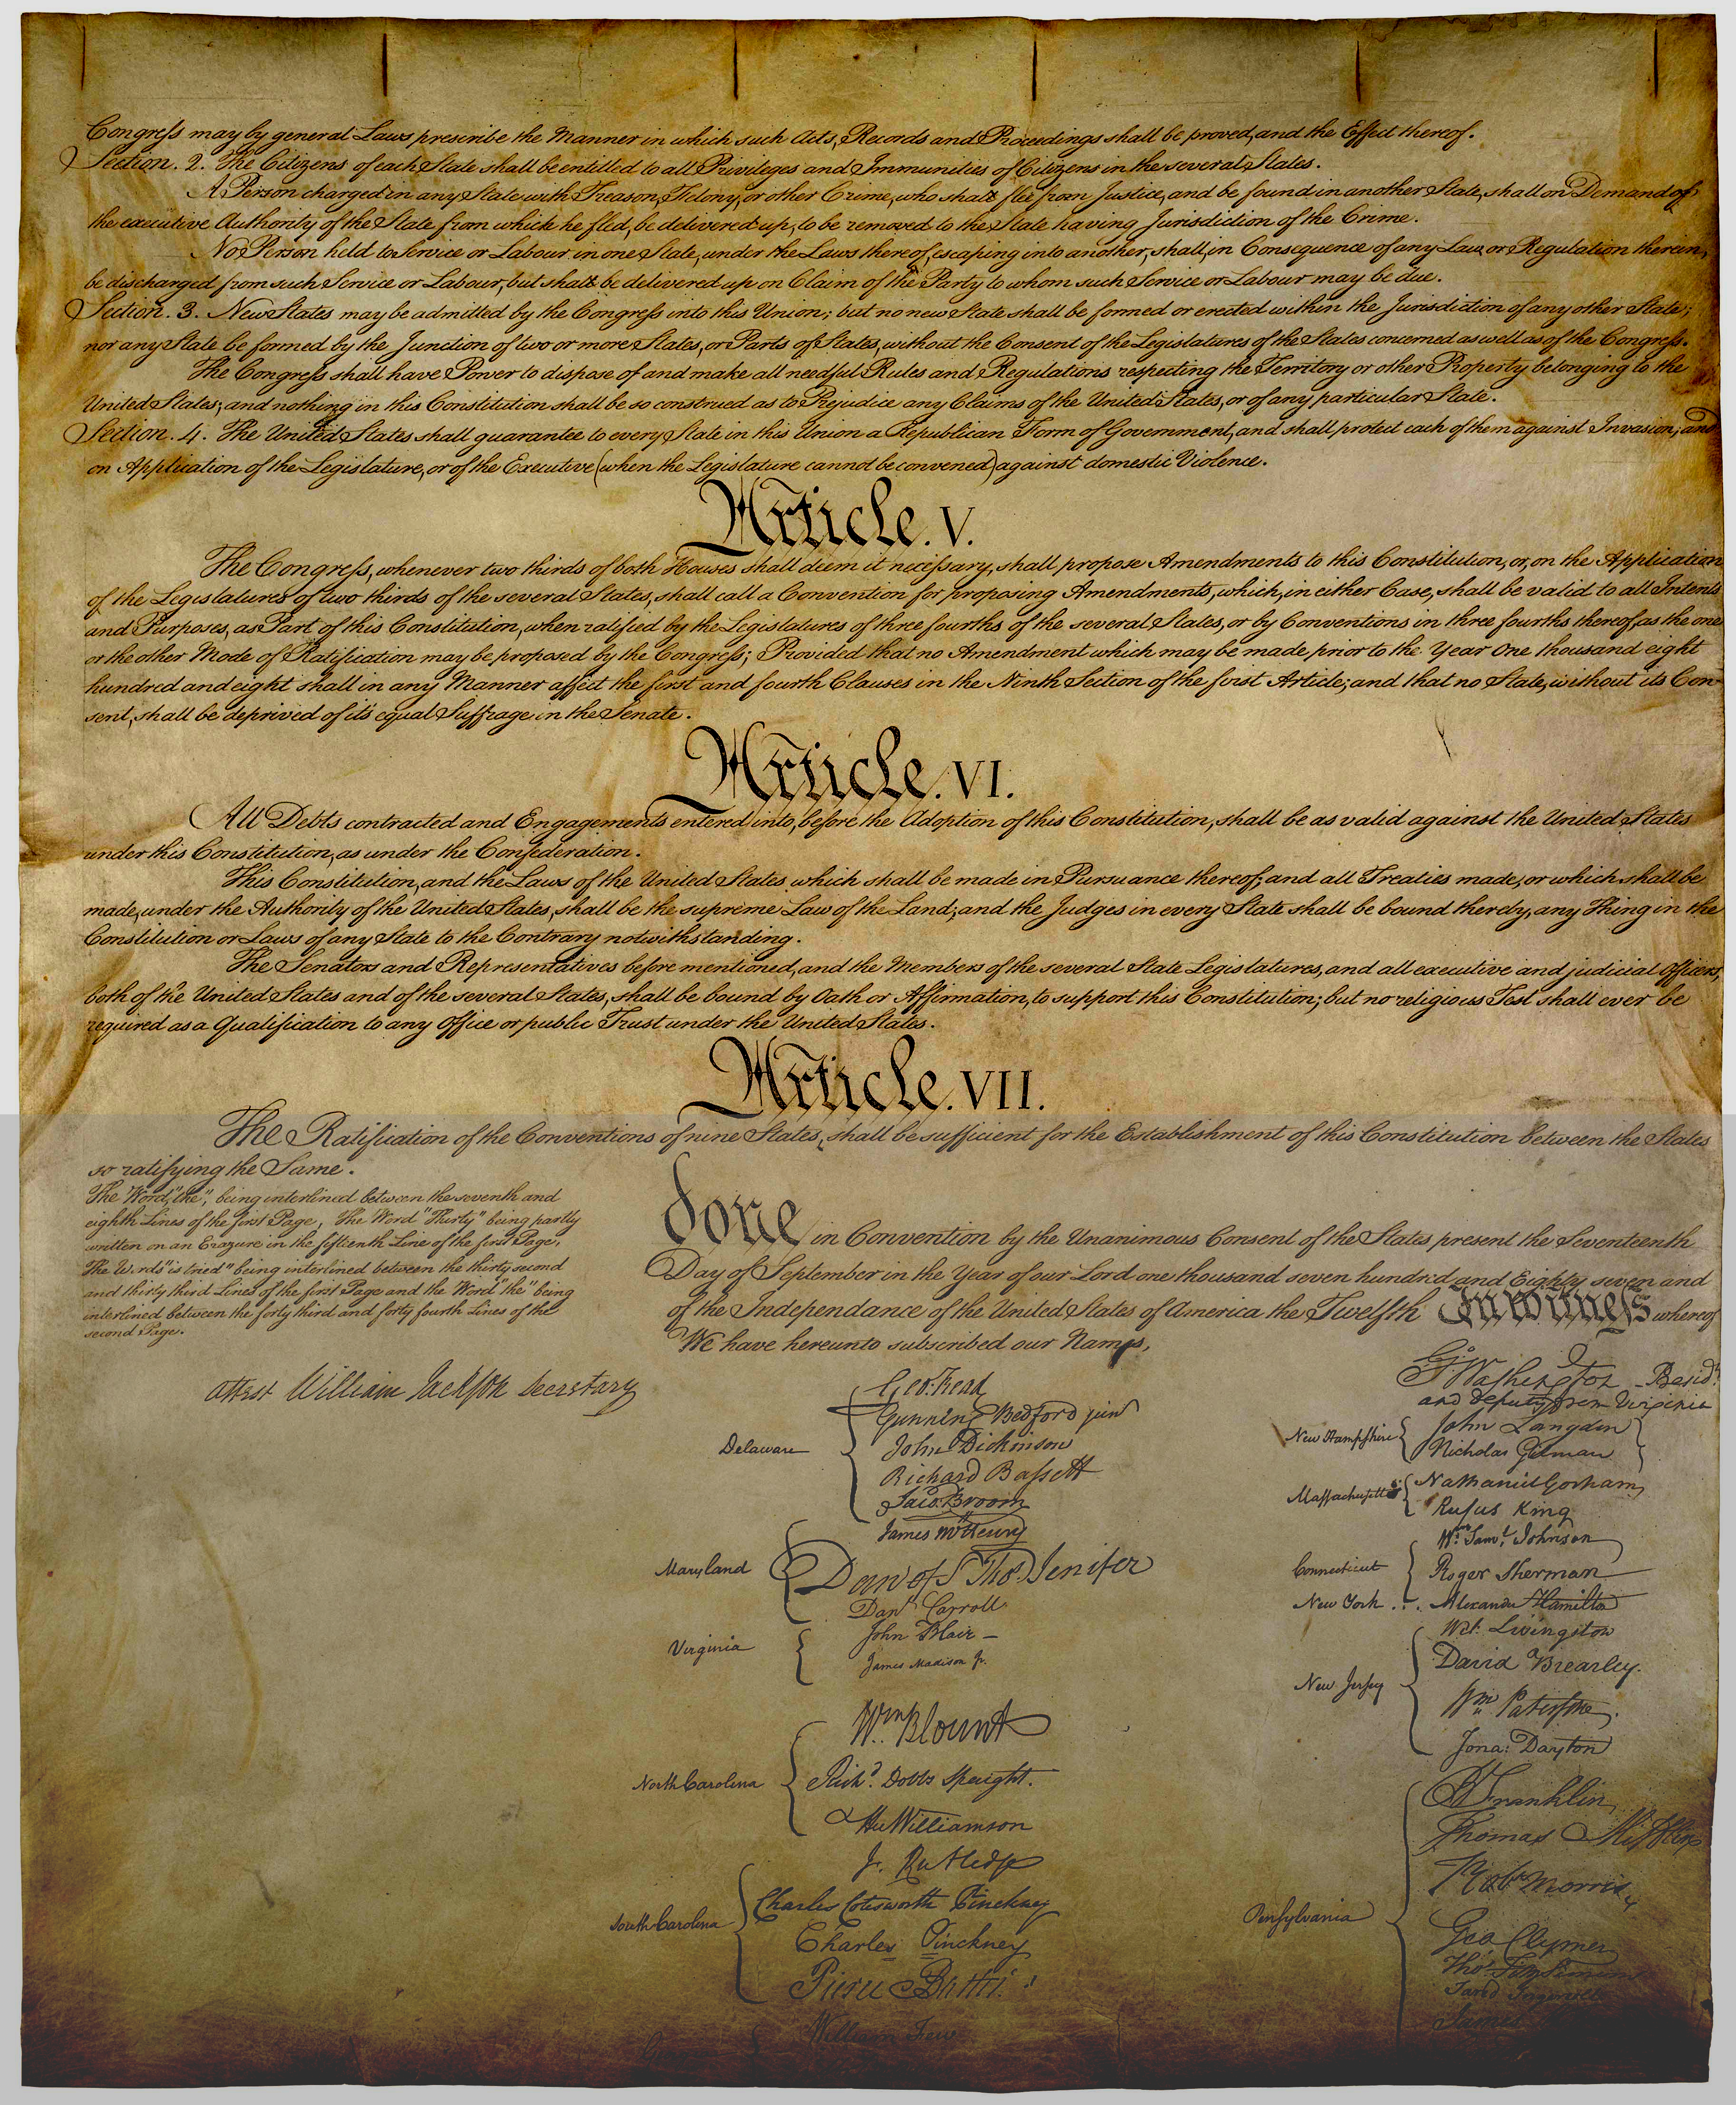 Congress may by general Laws prescribe the Manner in which such Acts, Records and Proceedings shall be proved, and the Effect thereof.
Section. 2. The Citizens of each State shall be entitled to all Privileges and Immunities of Citizens in the several States.
A Person charged in any State with Treason, Felony, or other Crime, who shall flee from Justice, and be found in another State, shall on Demand of
the executive Authority of the State from which he fled, be delivered up, to be removed to the State having Jurisdiction of the Crime.
No Person held to Service or Labour in one State, under the Laws thereof, escaping into another, shall, in Consequence of any Law or Regulation therein,
be discharged from such Service or Labour, but shall be delivered up on Claim of the Party to whom such Service or Labour may be due.
Section. 3. New States may be admitted by the Congress into this Union; but no new State shall be formed or erected within the Jurisdiction of any other State;
nor any State be formed by the Junction of two or more States, or Parts of States, without the Consent of the Legislatures of the States concerned as well as of the Congress.
The Congress shall have Power to dispose of and make all needful Rules and Regulations respecting the Territory or other Property belonging to the
United States; and nothing in this Constitution shall be so construed as to Prejudice any Claims of the United States, or of any particular State.
Section. 4. The United States shall guarantee to every State in this Union a Republican Form of Government, and shall protect each of them against Invasion; and
on Application of the Legislature, or of the Executive (when the Legislature cannot be convened) against domestic Violence.
Article. V.
The Congress, whenever two thirds of both Houses shall deem it necessary, shall propose Amendments to this Constitution, or, on the Application
of the Legislatures of two thirds of the several States, shall call a Convention for proposing Amendments, which, in either Case, shall be valid to all Intents
and Purposes, as Part of this Constitution, when ratified by the Legislatures of three fourths of the several States, or by Conventions in three fourths thereof, as the one
or the other Mode of Ratification may be proposed by the Congress; Provided that no Amendment which may be made prior to the Year One thousand eight
hundred and eight shall in any Manner affect the first and fourth Clauses in the Ninth Section of the first Article; and that no State, without its Con-
sent, shall be deprived of it's equal Suffrage in the Senate.
Article. VI.
All Debts contracted and Engagements entered into, before the Adoption of this Constitution, shall be as valid against the United States
under this Constitution, as under the Confederation.
This Constitution, and the Laws of the United States which shall be made in Pursuance thereof; and all Treaties made, or which shall be
made, under the Authority of the United States, shall be the supreme Law of the Land; and the Judges in every State shall be bound thereby, any Thing in the
Constitution or Laws of any State to the Contrary notwithstanding.
The Senators and Representatives before mentioned, and the Members of the several State Legislatures, and all executive and judicial Officers,
both of the United States and of the several States, shall be bound by Oath or Affirmation, to support this Constitution; but no religious Test shall ever be
required as a Qualification to any Office or public Trust under the United States.
Article. VII.
The Ratification of the Conventions of nine States, shall be sufficient for the Establishment of this Constitution between the States
so ratifying the Same.
The Word, "the," being interlined between the seventh and
eighth Lines of the first Page, The Word "Thirty" being partly
written on an Erazure in the fifteenth Line of the first Page,
The Words "is tried" being interlined between the thirty second
and thirty third Lines of the first Page and the Word "the" being
interlined between the forty third and forty fourth Lines of the
second Page.
Attest William Jackson Secretary
done in Convention by the Unanimous Consent of the States present the Seventeenth
Day of September in the Year of our Lord one thousand seven hundred and Eighty seven and
of the Independance of the United States of America the Twelfth In Witness whereof
We have hereunto subscribed our Names,
Go. Washington Presidt.
and deputy from Virginia
Delaware
Geo: Read
Gunning Bedford jun
John Dickinson
Richard Bassett
Jaco: Broom
Maryland
James McHenry
Dan of St Thos. Jenifer
Danl Carroll
Virginia
John Blair—
James Madison Jr.
North Carolina
Wm. Blount
Richd. Dobbs Spaight.
Hu Williamson
South Carolina
J. Rutledge
Charles Cotesworth Pinckney
Charles Pinckney
Pierce Butler.
William Few
New Hampshire
John Langdon
Nicholas Gilman
Massachusetts
Nathaniel Gorham
Rufus King
Connecticut
Wm. Saml. Johnson
Roger Sherman
New York . . . Alexander Hamilton
New Jersey
Wil: Livingston
David Brearley.
Wm. Paterson.
Jona: Dayton
Pensylvania
B Franklin
Thomas Mifflin
Robt Morris
Geo. Clymer
Thos. FitzSimons
Jared Ingersoll
James